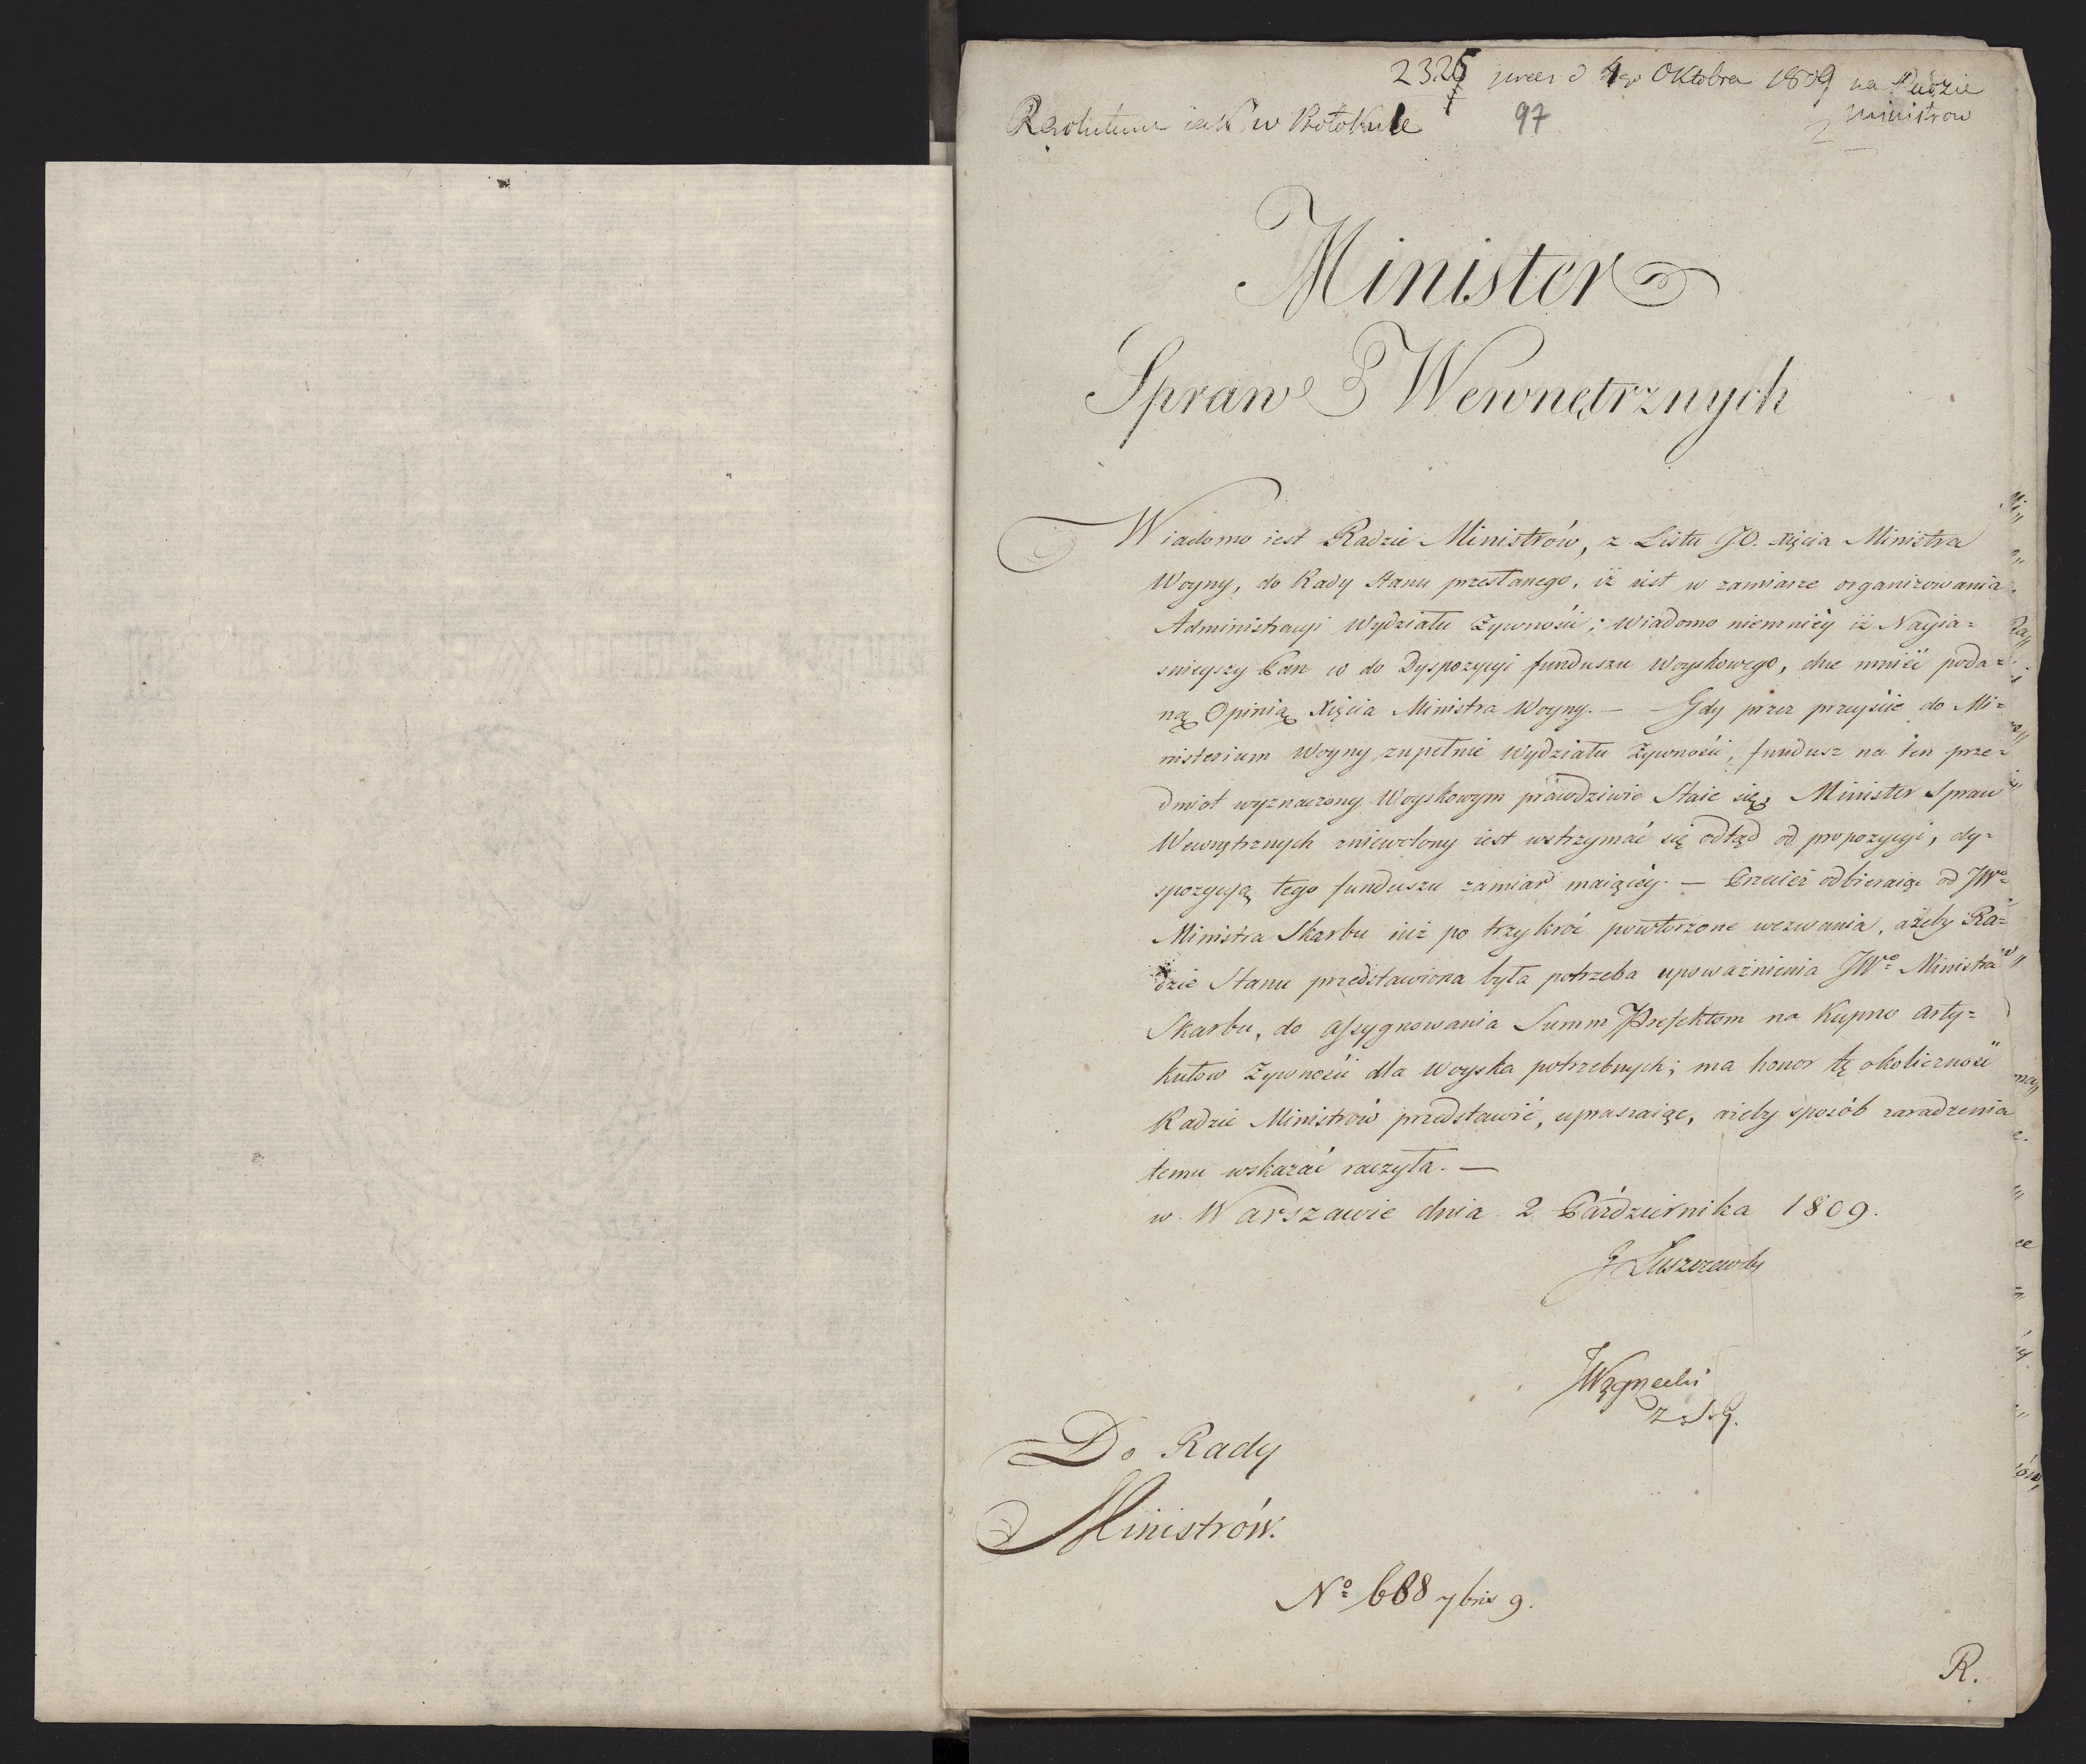 2325 prees d 4go Oktobra 1809 na Radzie
Ministrow
Resolutum jak w Protokule 97 2
Minister
Spraw Wewnętrznych
Wiadomo iest Radzie Ministrów, z Listu JO. Xięcia Ministra
Woyny, do Rady Stanu przesłanego, iż iest w zamiarze organizowania
Administracyi Wydziału Żywności; wiadomo niemniéy iż Nayia=
snieyszy Pan w do Dyspozycyi funduszu Woyskowego, chce mnieć poda=
ną Opinią Xięcia Ministra Woyny. — Gdy przez przeyście do Mi=
nisterium Woyny zupełnie Wydziału Żywności, fundusz na ten prze=
dmiot wyznaczony Woyskowym prawdziwie Staie się, Minister Spraw
Wewnętrznych zniewolony iest wstrzymać się odtąd od propozycyi, dy=
spozycyą tego funduszu zamiar maiącéy. — Przecież odbieraiąc od JWo
Ministra Skarbu iuż po trzykroć powtorzone wezwania, ażeby Ra=
dzie Stanu przedstawiona była potrzeba upoważnienia JWo Ministra
Skarbu, do assygnowania Summ Prefektom na Kupno arty=
kułow Żywności dla Woyska potrzebnych; ma honor tę okoliczność
Radzie Ministrów przedstawić, upraszaiąc, ażeby sposób zaradzenia
temu wskazać raczyła. —
w Warszawie dnia 2 Października 1809.
J Łuszczewski
JWęgnecki
Z. S. G.
Do Rady
Ministrów.
No 688 7bris 9.
R.